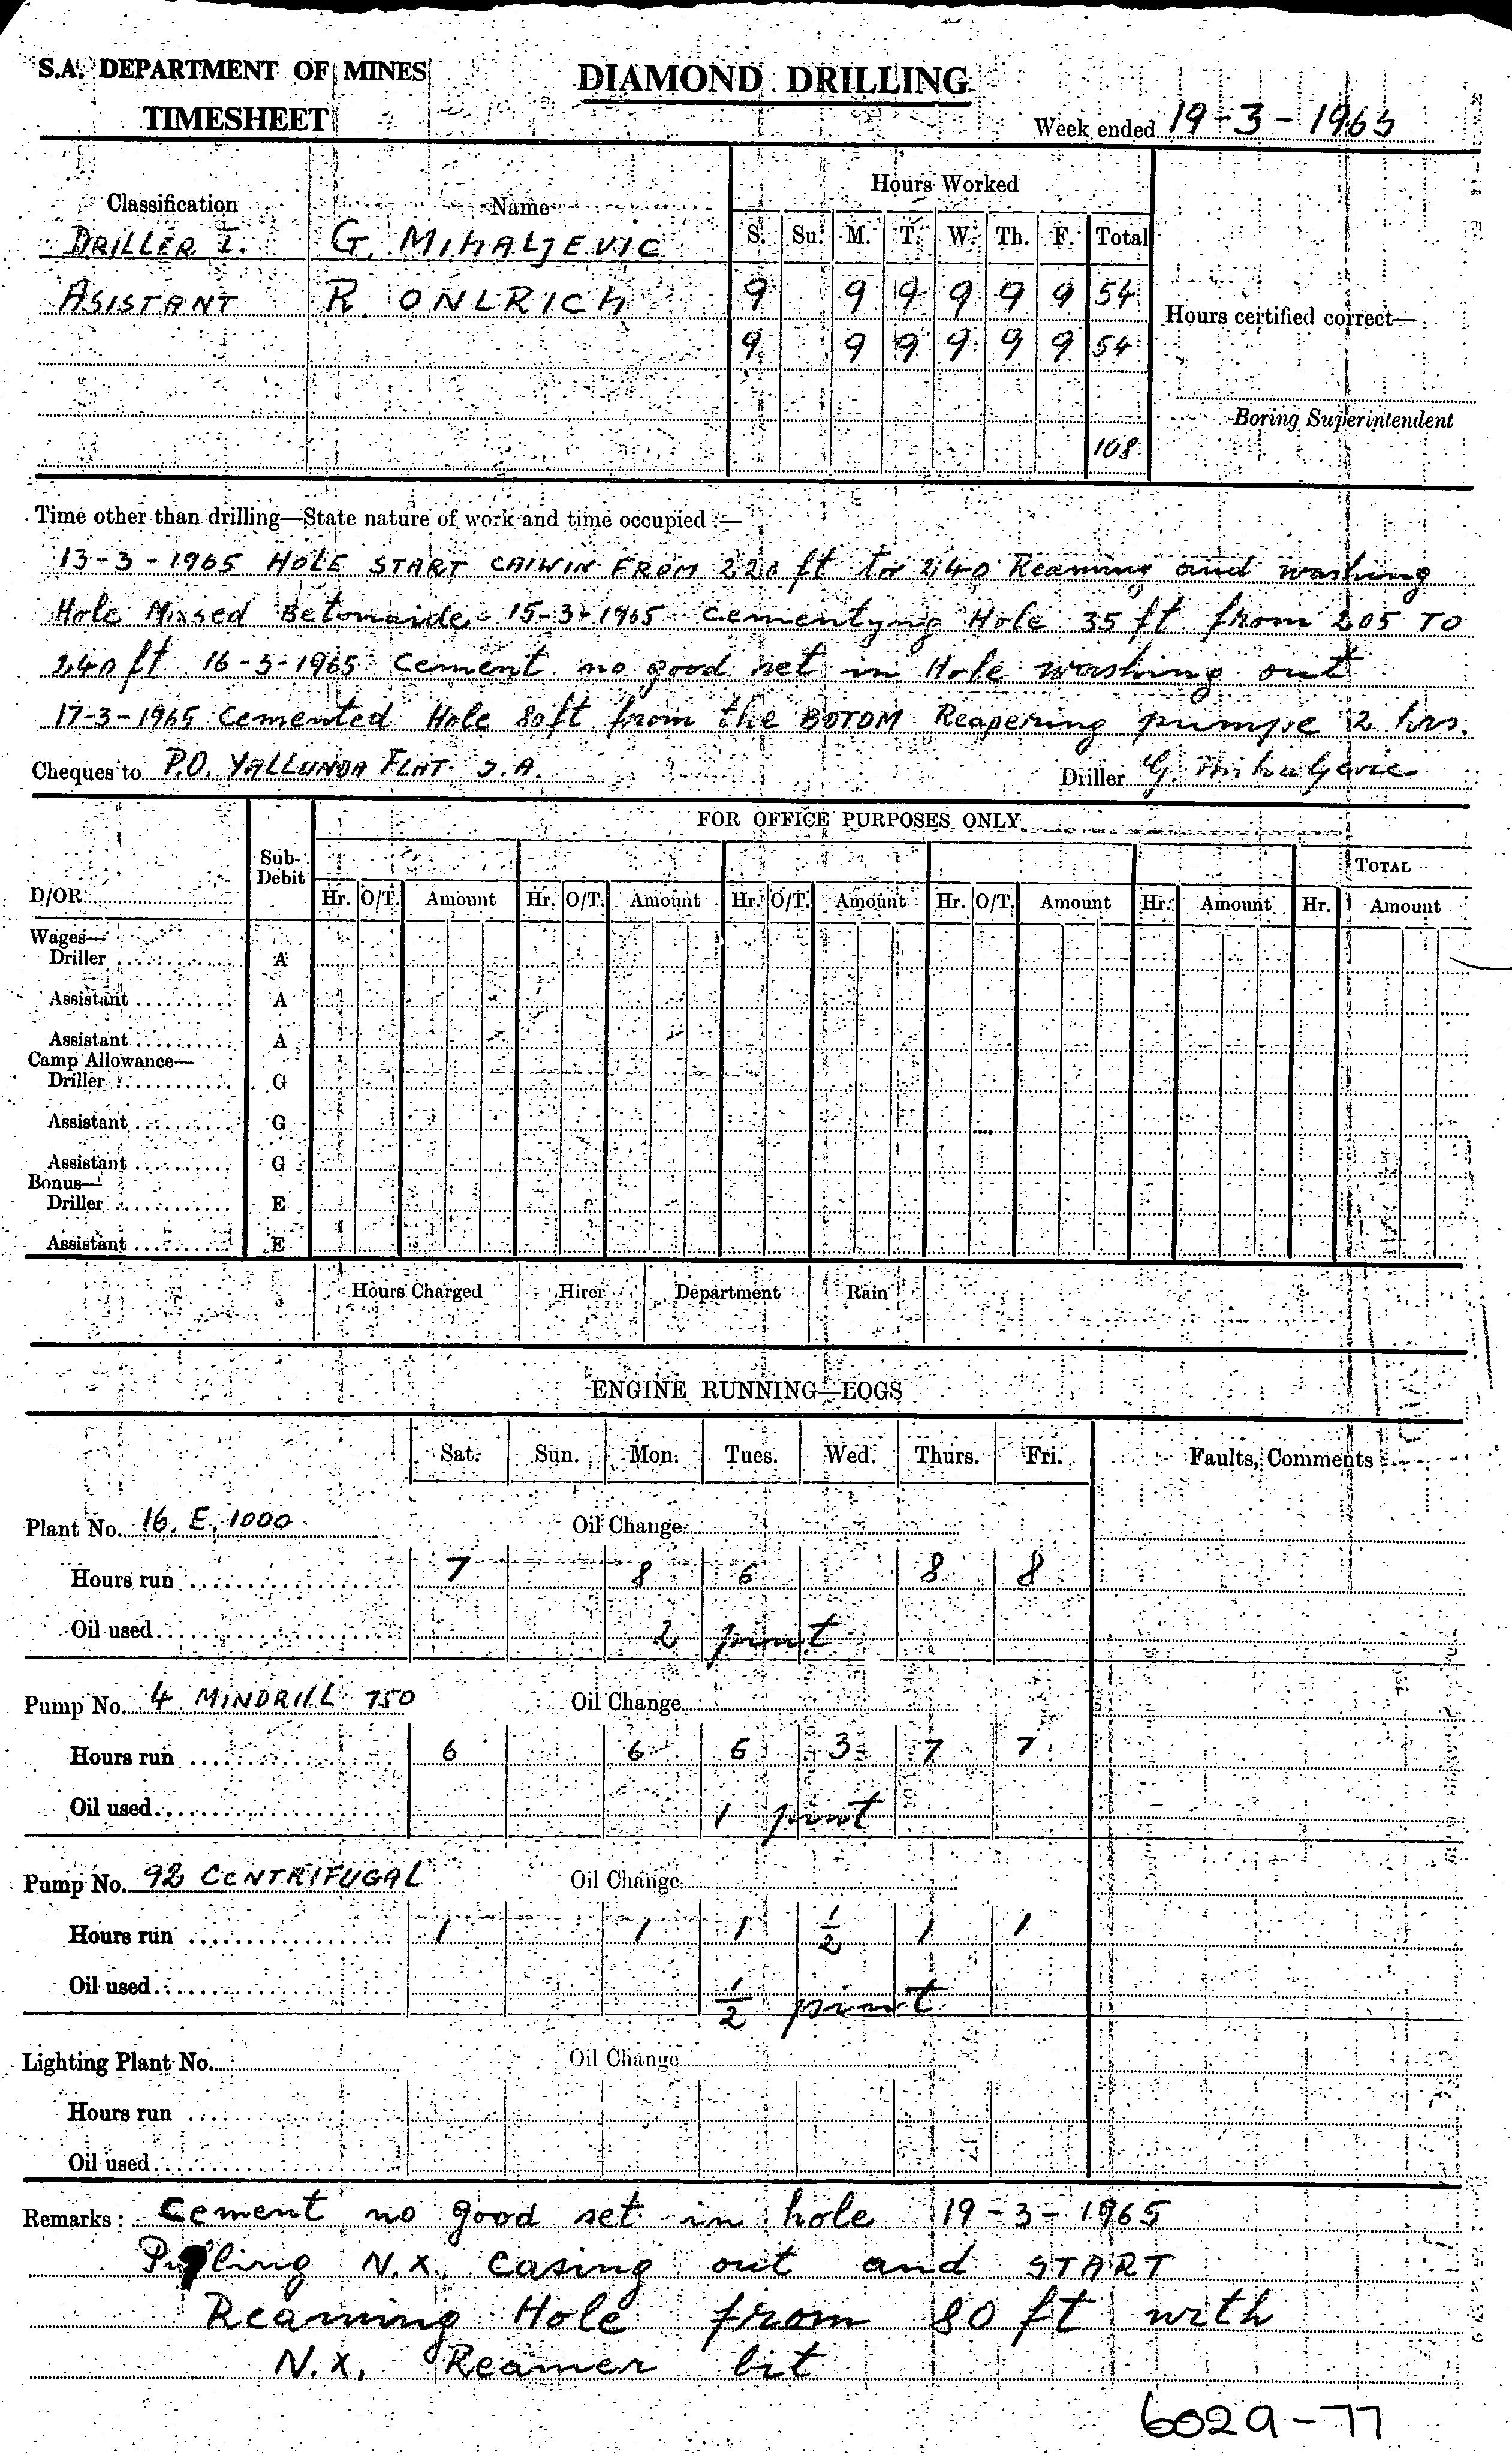 S.A. DEPARTMENT OF MINES
DIAMOND DRILLING
TIMESHEET
Week ended 19-3-1965
Classification Name Hours Worked
S. Su. M. T. W. Th. F. Total
DRILLER I. G. MIHALJEVIC
ASISTANT R. ONLRICH 9 9 9 9 9 9 54
Hours certified correct—
9 9 9 9 9 9 54
Boring Superintendent
108
Time other than drilling—State nature of work and time occupied :—
13-3-1965 HOLE START CAIWIN FROM 220 ft to 240 Reaming and washing
Hole Mixsed Betonaide 15-3-1965 cementyng Hole 35 ft from 205 TO
240 ft 16-3-1965 Cement no good set in Hole washing out
17-3-1965 Cemented Hole 80ft from the BOTOM Reapering pumpe 2 hrs.
Cheques to P.O. YALLUNDA FLAT S.A. Driller G. Mihaljevic
FOR OFFICE PURPOSES ONLY
D/OR Sub-Debit TOTAL
Hr. O/T. Amount Hr. O/T. Amount Hr. O/T. Amount Hr. O/T. Amount Hr. Amount Hr. Amount
Wages—
Driller A
Assistant A
Assistant A
Camp Allowance—
Driller G
Assistant G
Assistant G
Bonus—
Driller E
Assistant E
Hours Charged Hirer Department Rain
ENGINE RUNNING—LOGS
Sat. Sun. Mon. Tues. Wed. Thurs. Fri. Faults, Comments
Plant No. 16. E. 1000 Oil Change
Hours run 7 8 6 8 8
Oil used 2 pint
Pump No. 4 MINDRILL 750 Oil Change
Hours run 6 6 6 3 7 7
Oil used 1 pint
Pump No. 92 CENTRIFUGAL Oil Change
Hours run 1 1 1 1/2 1 1
Oil used 1/2 pint
Lighting Plant No. Oil Change
Hours run
Oil used
Remarks: Cement no good set in hole 19-3-1965
Puling N.X. casing out and START
Reaming Hole from 80 ft with
N.X. Reamer bit
6029-77